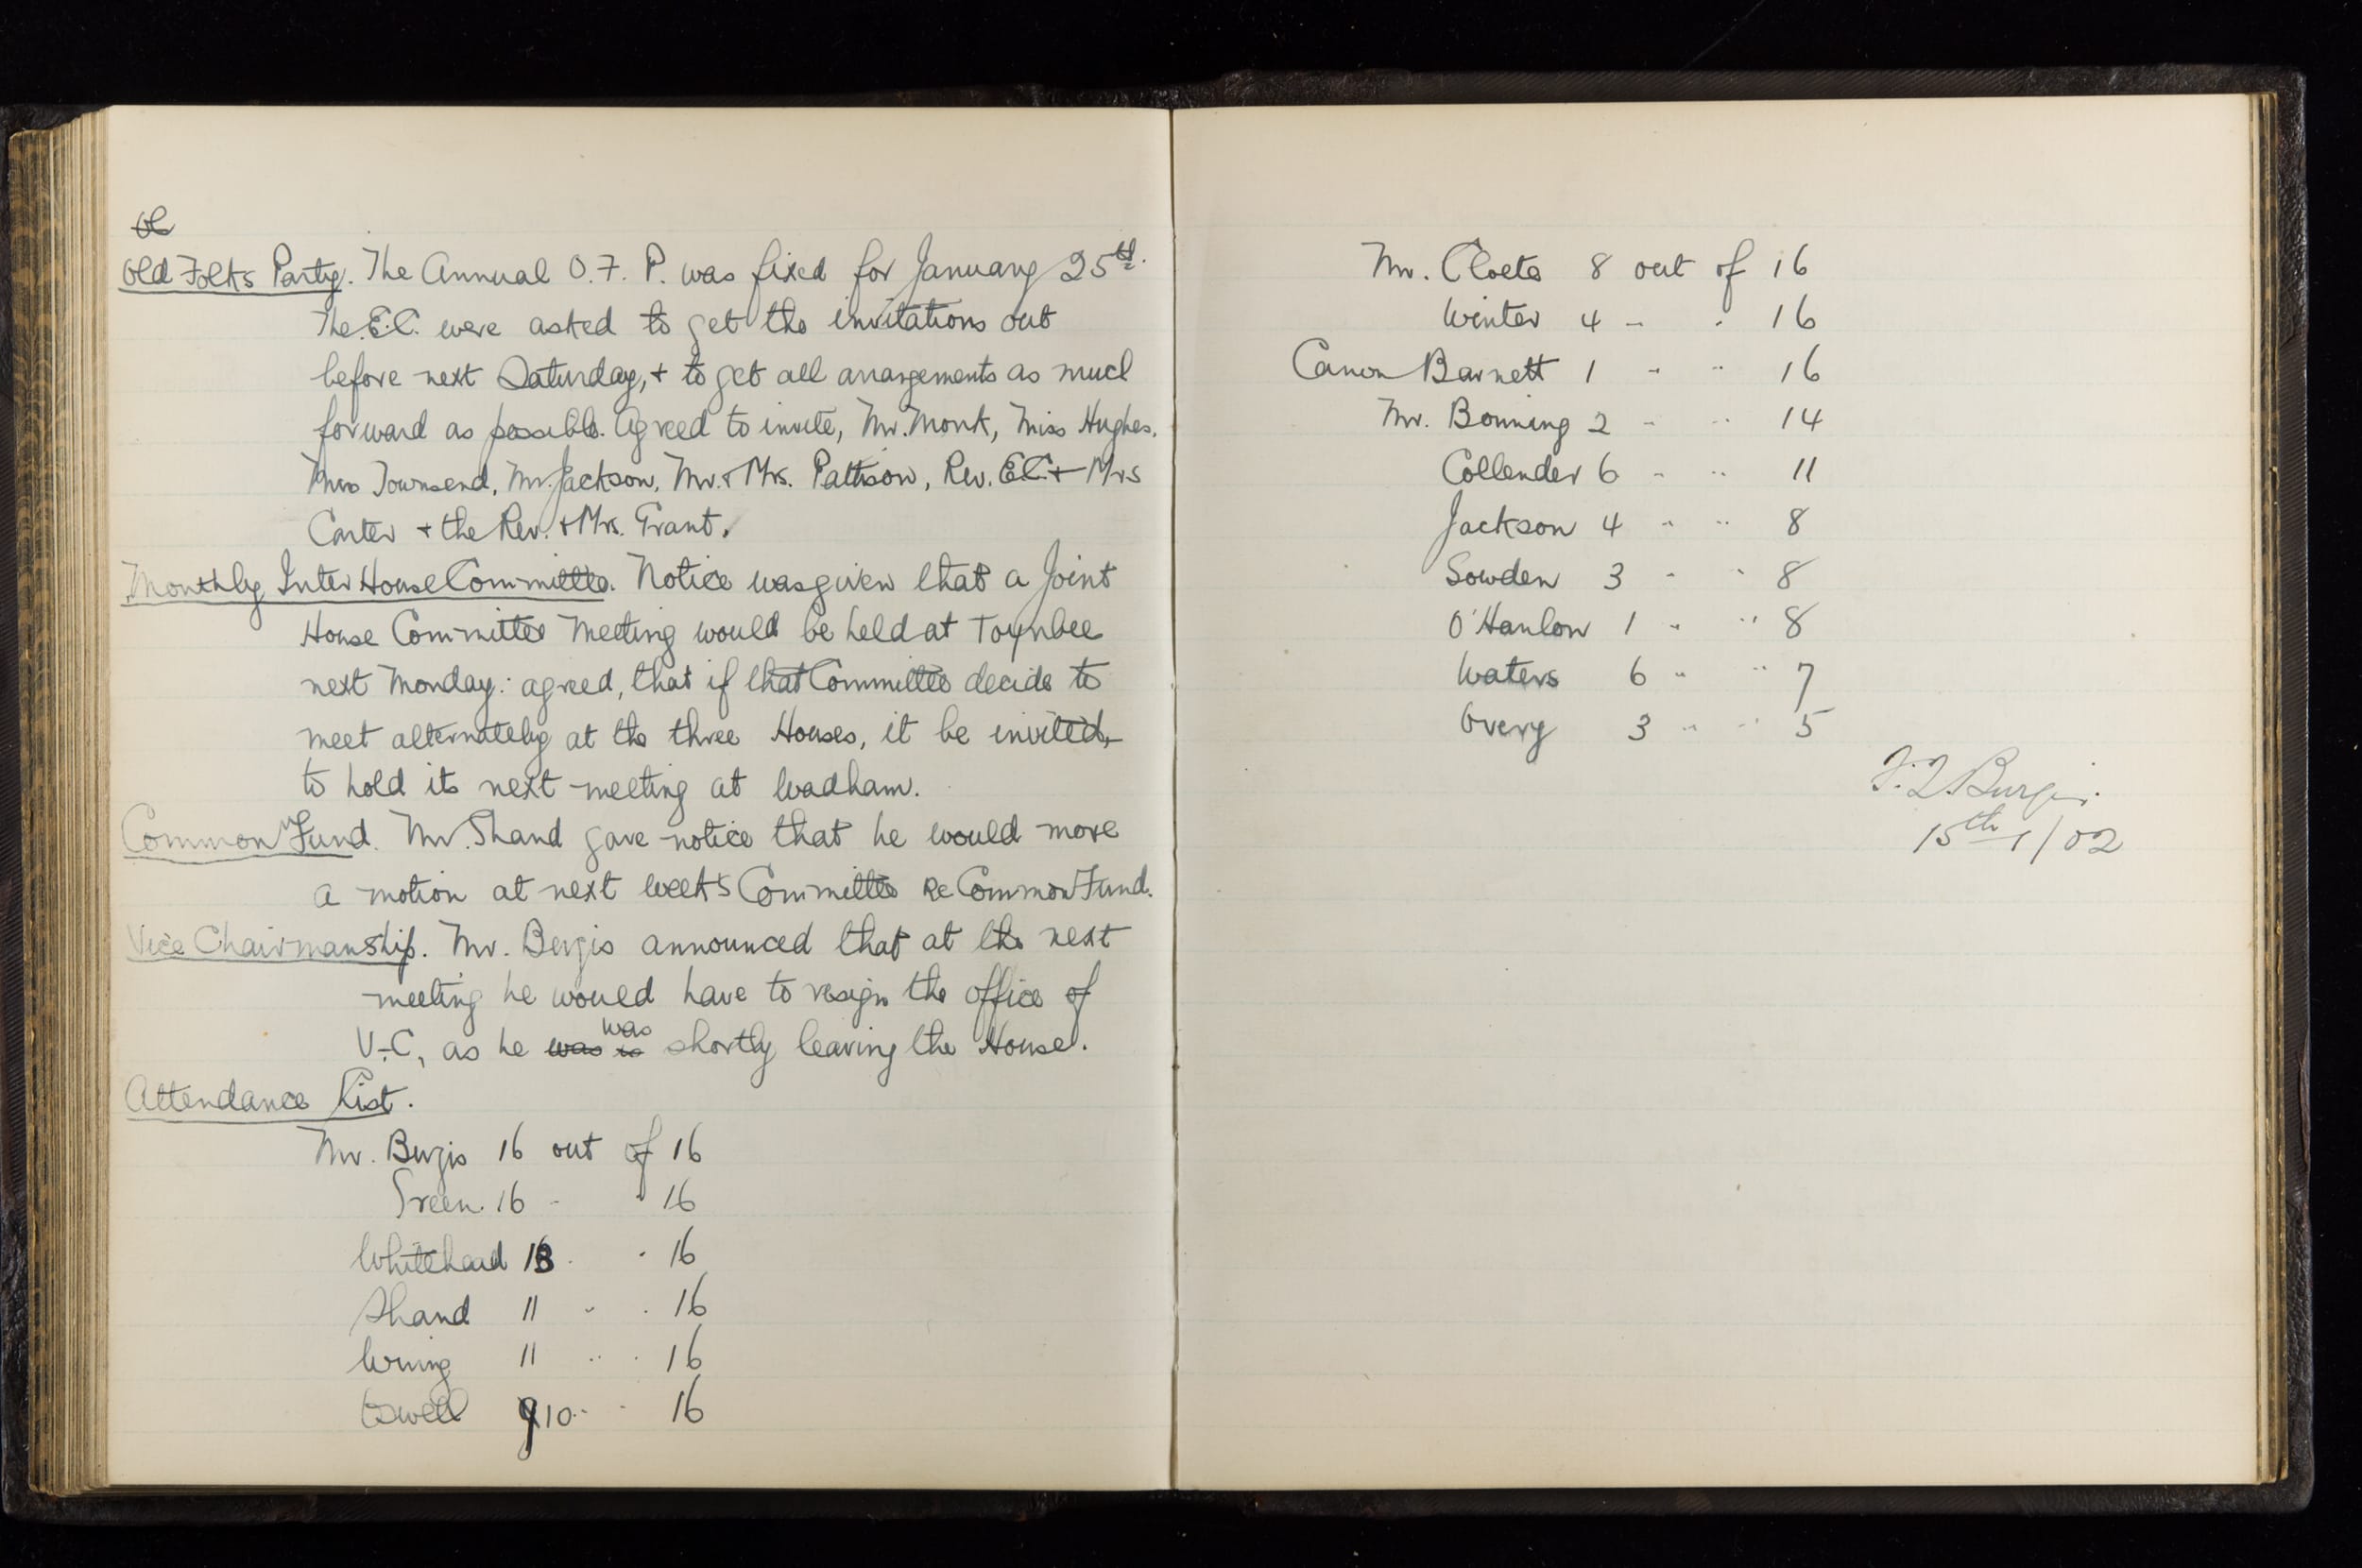 Ol
Old Folks Party. The Annual O.F.P. was fixed for January 25th.
The E.C. were asked to get the invitations out
before next Saturday, + to get all arrangements as much
forward as possible. Agreed to invite, Mr. Monk, Miss Hughes,
Miss Townsend, Mr. Jackson, Mr. & Mrs. Pattison, Rev. E.C. + Mrs
Carter + the Rev. & Mrs. Grant.
Monthly Inter House Committee. Notice was given that a Joint
House Committee Meeting would be held at Toynbee
next Monday: agreed, that if that Committee decide to
meet alternately at the three Houses, it be invited
to hold its next meeting at Wadham.
Common Fund. Mr. Shand gave notice that he would move
a motion at next week's Committee re Common Fund.
Vice Chairmanship. Mr. Burgis announced that at the next
meeting he would have to resign the office of
V-C, as he was is was shortly leaving the House.
Attendance List.
Mr. Burgis 16 out of 16
Green. 16 " " 16
Whitehead 13 " " 16
Shand 11 " " 16
11 " " 16
Oswell 9 10 " " 16
Mr. Cloete 8 out of 16
Winter 4 " " 16
Canon Barnett 1 " " 16
Mr. Bonning 2 " " 14
Collender 6 " " 11
Jackson 4 " " 8
Sowden 3 " " 8
O'Hanlon 1 " " 8
Waters 6 " " 7
Overy 3 " " 5
Burgis.
15th 1/02